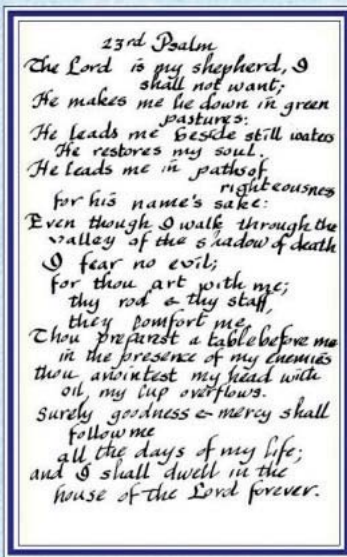 23rd Psalm
The Lord is my shepherd, I
shall not want;
He makes me lie down in green
pastures:
He leads me beside still waters
He restores my soul.
He leads me in paths of
righteousness
for his name's sake:
Even though I walk through the
valley of the shadow of death
I fear no evil;
for thou art with me;
thy rod & thy staff,
they comfort me.
Thou preparest a table before me
in the presence of my enemies
thou anointest my head with
oil, my cup overflows.
Surely goodness & mercy shall
follow me
all the days of my life;
and I shall dwell in the
house of the Lord forever.